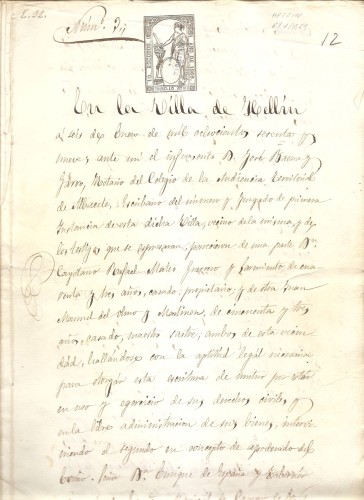 L. 92.
Núm.º 3
12
En la Villa de Hellín
a seis de Enero de mil ochocientos sesenta y
nueve; ante mí el infrascrito D. José Baeza y
Notario del Colegio de la Audiencia territorial
de Albacete, Escribano del número y Juzgado de primera
Instancia de esta dicha Villa, vecino de la misma, y de
los testigos que se espresaran, parecieron de una parte Dn.
Cayetano Rafael y Sarmiento, de cua
renta y tres años, casado, propietario; y de otra Juan
Manuel del Olmo y Martinez, de cincuenta y tres
años, casado, maestro sastre, ambos de esta vecin
dad, hallandose con la aptitud legal necesaria
para otorgar esta escritura de mutuo por estar
en uso y egercicio de sus derechos civiles y
en la libre administracion de sus bienes, intervi
niendo el segundo en concepto de apoderado del
Dn. Enrique de España y